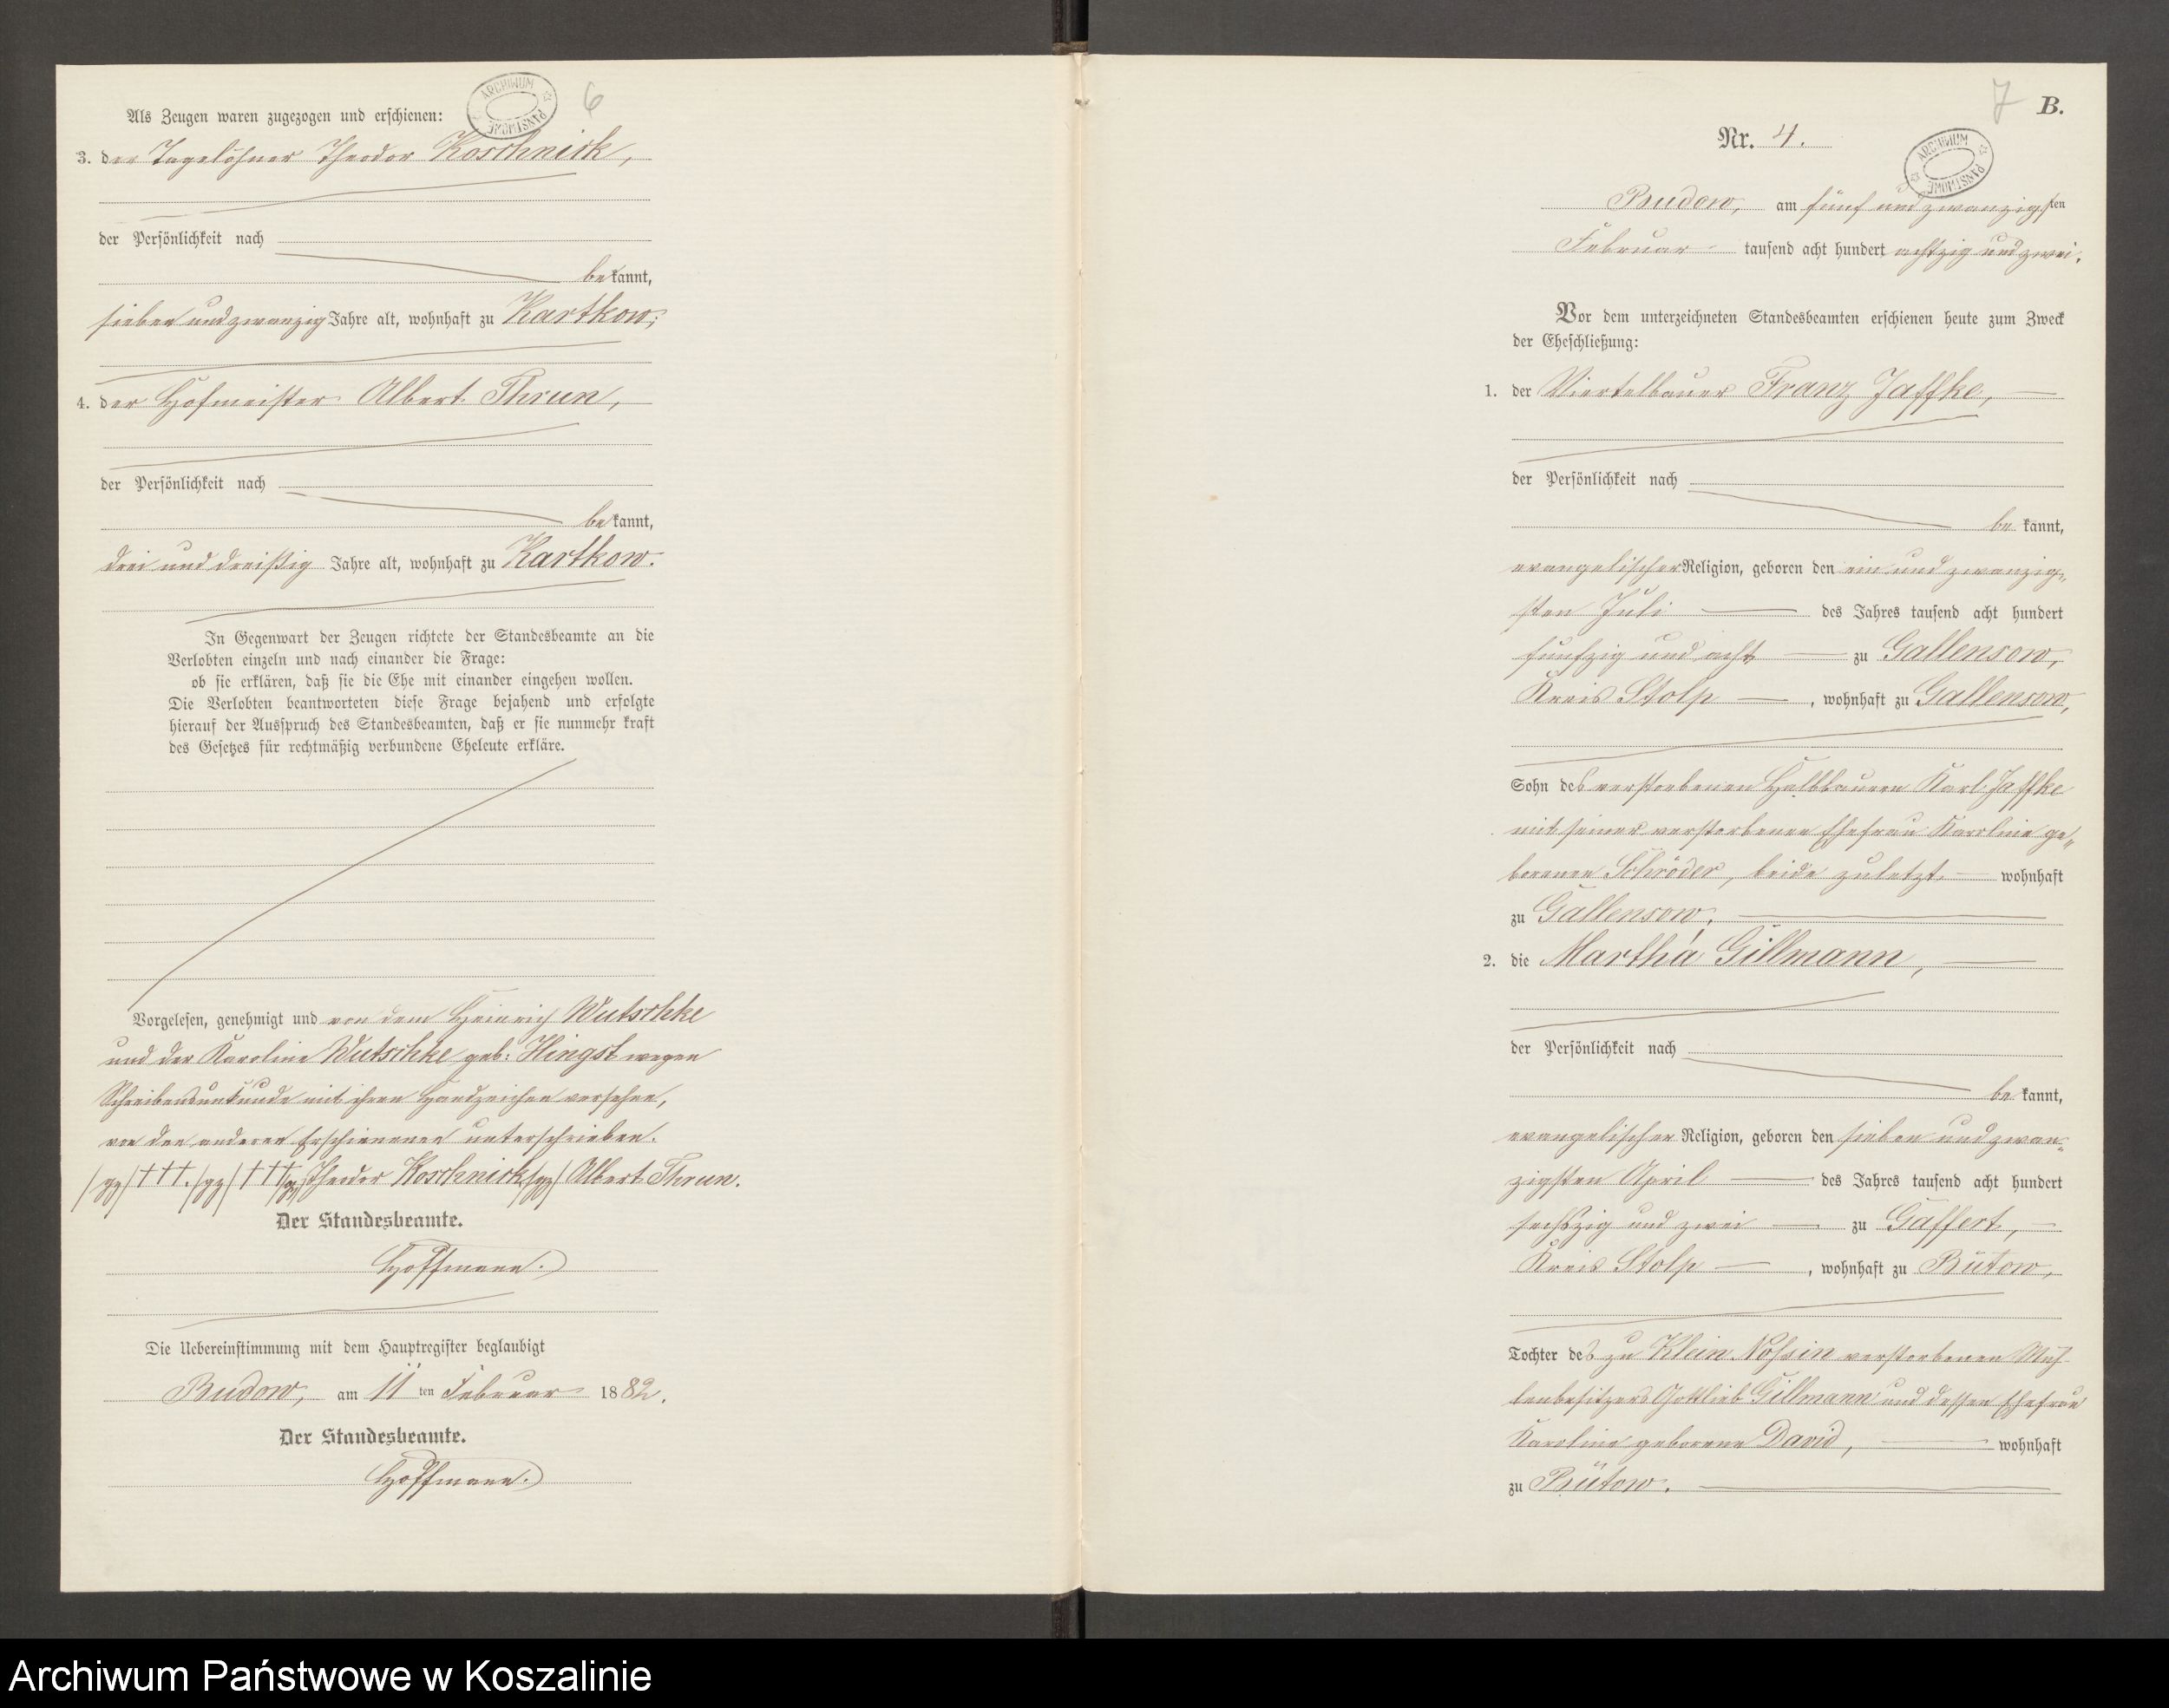 ARCHIWUM PAŃSTWOWE
6
Als Zeugen waren zugezogen und erschienen:
3. der Tagelöhner Theodor Koschnick,
der Persönlichkeit nach
be kannt,
sieben und zwanzig Jahre alt, wohnhaft zu Kartkow;
4. der Hofmeister Albert Thrun,
der Persönlichkeit nach
be kannt,
drei und dreißig Jahre alt, wohnhaft zu Kartkow.
In Gegenwart der Zeugen richtete der Standesbeamte an die
Verlobten einzeln und nach einander die Frage:
ob sie erklären, daß sie die Ehe mit einander eingehen wollen.
Die Verlobten beantworteten diese Frage bejahend und erfolgte
hierauf der Ausspruch des Standesbeamten, daß er sie nunmehr kraft
des Gesetzes für rechtmäßig verbundene Eheleute erkläre.
Vorgelesen, genehmigt und von dem Heinrich Wutschke
und der Karoline Wutschke geb: Hingst wegen
Schreibensunkunde mit ihren Handzeichen versehen,
von den anderen Erschienenen unterschrieben.
/gz/ ††† . /gz/ ††† /gz/ Theodor Koschnick /gz/ Albert Thrun.
Der Standesbeamte.
Hoffmann.
Die Uebereinstimmung mit dem Hauptregister beglaubigt
Budow, am 11 ten Februar 1882.
Der Standesbeamte.
Hoffmann.
7 B.
Nr. 4.
ARCHIWUM PAŃSTWOWE
Budow, am fünf und zwanzigsten
Februar tausend acht hundert achtzig und zwei.
Vor dem unterzeichneten Standesbeamten erschienen heute zum Zweck
der Eheschließung:
1. der Viertelbauer Franz Jaffke,
der Persönlichkeit nach
be kannt,
evangelischer Religion, geboren den ein und zwanzig-
sten Juli des Jahres tausend acht hundert
funfzig und acht zu Gallensow,
Kreis Stolp, wohnhaft zu Gallensow,
Sohn des verstorbenen Halbbauern Karl Jaffke
mit seiner verstorbenen Ehefrau Karoline ge-
borenen Schröder, beide zuletzt wohnhaft
zu Gallensow.
2. die Martha Gillmann,
der Persönlichkeit nach
be kannt,
evangelischer Religion, geboren den sieben und zwan-
zigsten April des Jahres tausend acht hundert
sechszig und zwei zu Gaffert,
Kreis Stolp, wohnhaft zu Bütow,
Tochter des zu Klein Nossin verstorbenen Müh-
lenbesitzers Gottlieb Gillmann und dessen Ehefrau
Karoline geborene David, wohnhaft
zu Bütow.
Archiwum Państwowe w Koszalinie